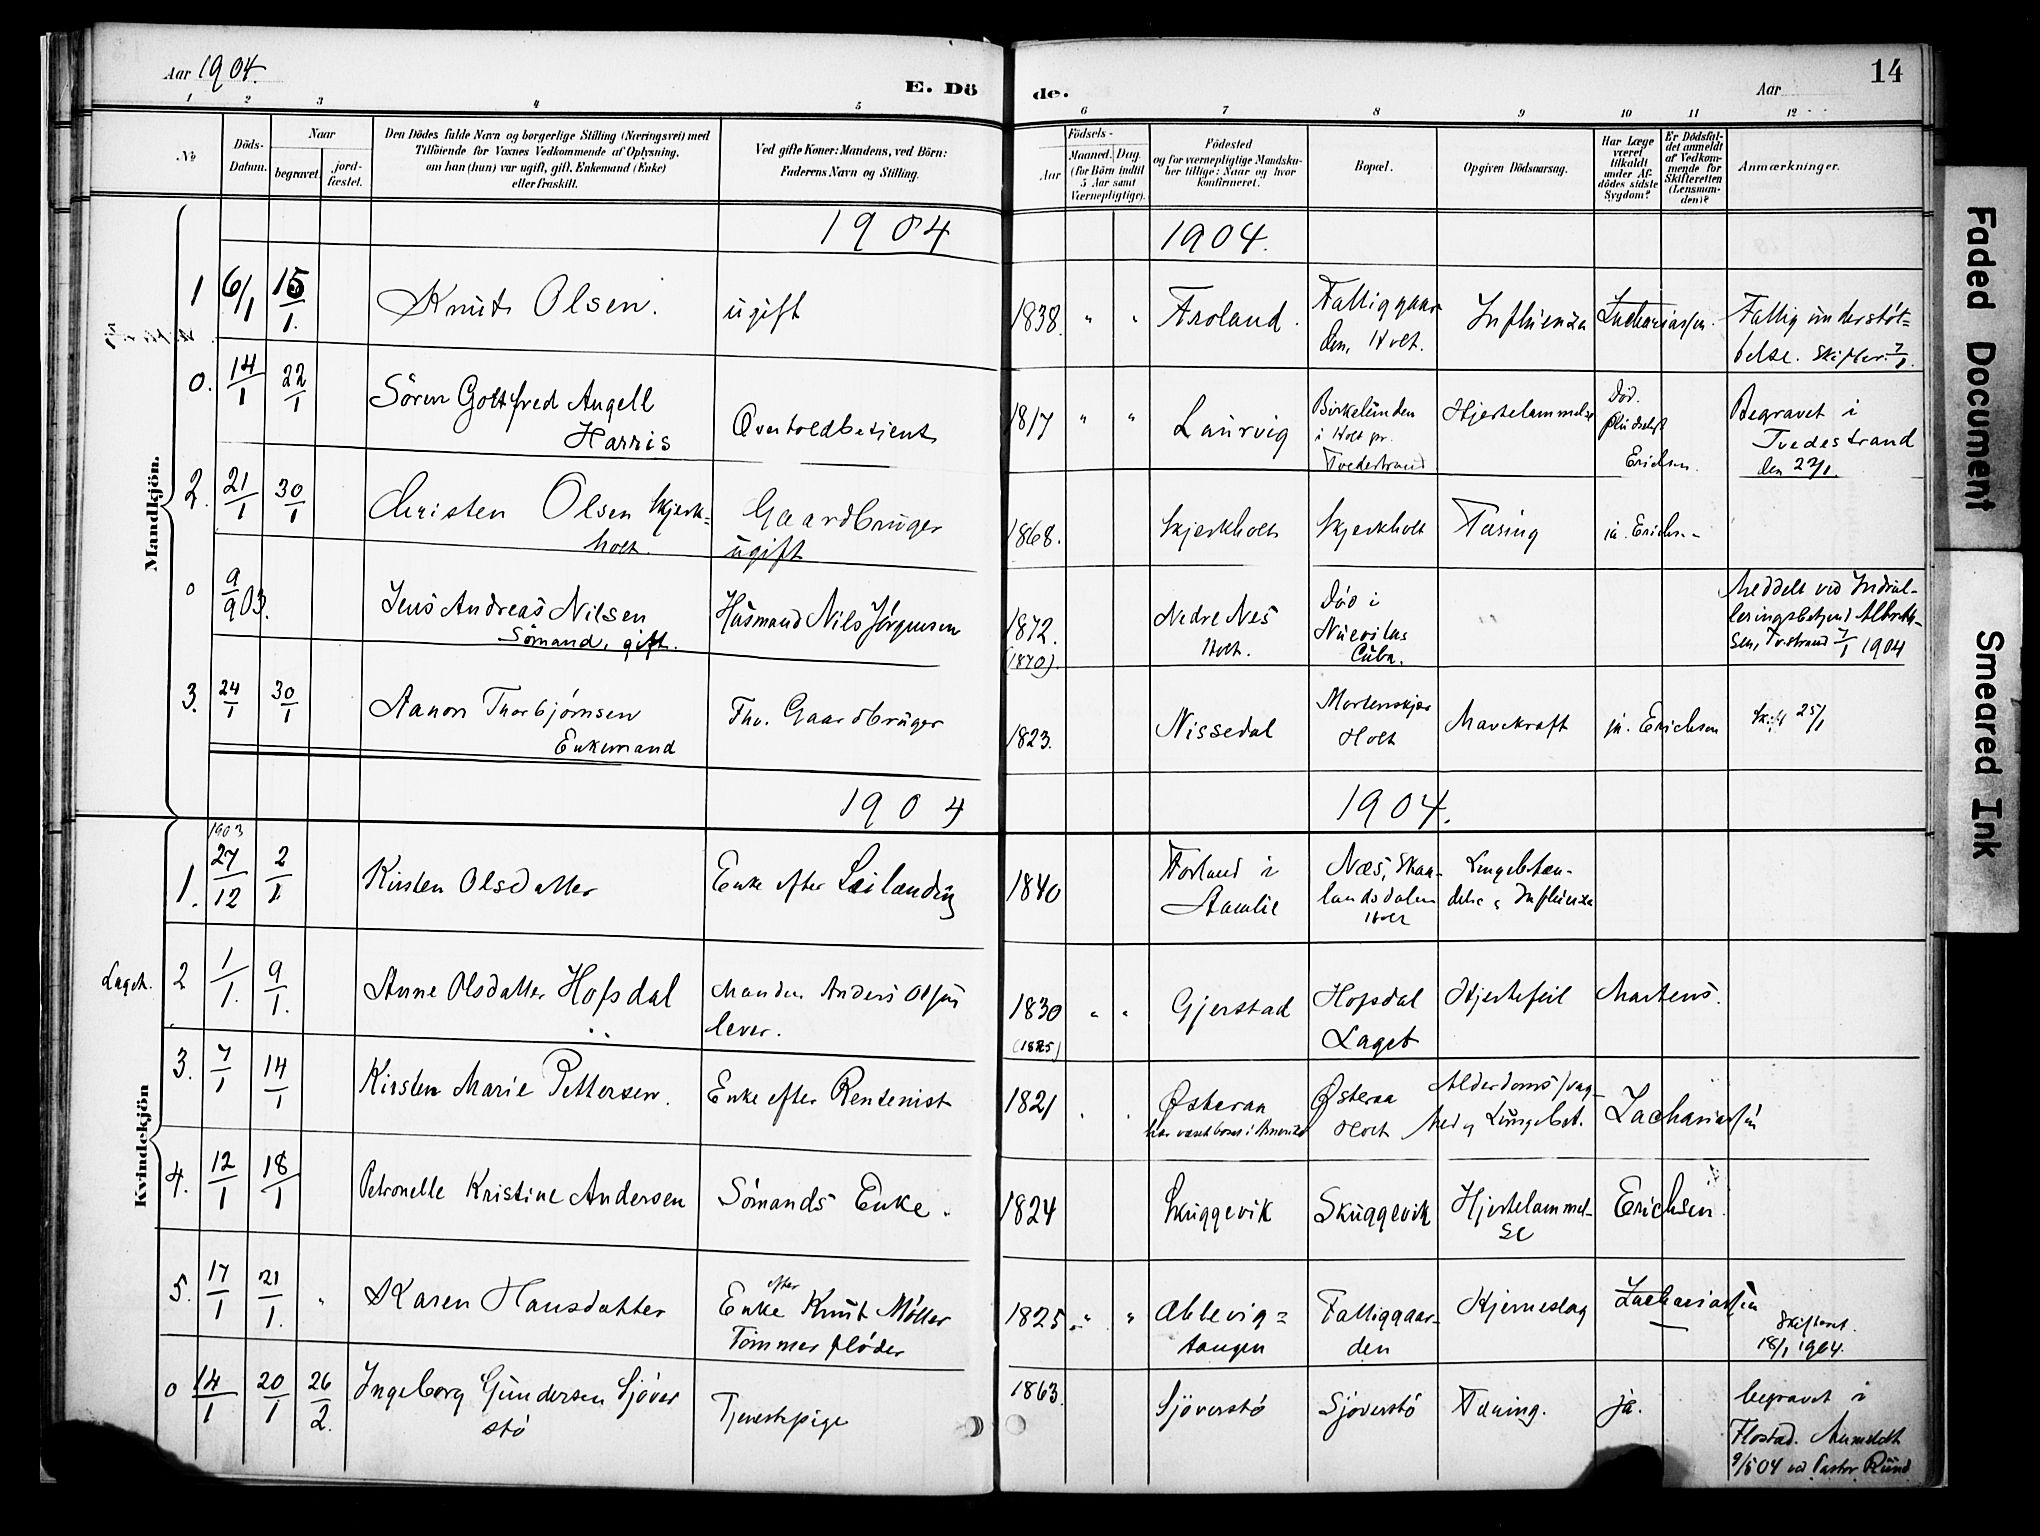 Aar 1904.
E. Dö de.
Aar
14
1 2 3 4 5 6 7 8 9 10 11 12
No
Döds-Datum.
Naar
begravet.
jord-fæstet.
Den Dödes fulde Navn og borgerlige Stilling (Næringsvei) med
Tilföiende for Voxnes Vedkommende af Oplysning,
om han (hun) var ugift, gift, Enkemand (Enke)
eller fraskilt.
Ved gifte Koner: Mandens, ved Börn:
Faderens Navn og Stilling.
Födsels-
Aar
Maaned. Dag.
(for Börn indtil
5 Aar samt
Værnepligtige).
Födested
og for værnepligtige Mandskaber tillige: Naar og hvor
konfirmeret.
Bopæl.
Opgiven Dödsaarsag.
Har Læge
været
tilkaldt
under Afdödes sidste
Sygdom?
Er Dödsfaldet anmeldt
af Vedkommende for
Skifteretten
(Lensmanden)?
Anmærkninger.
Mandkjön.
1904
1904.
1 6/1 15/1. Knut Olsen. ugift
1838. " " Froland. Fattiggaarden, Holt. Influenza Zachariassen. Fattig understøttelse. Skifter. 7/1.
0. 14/1 22/1 Sören Gottfred Angell
Harris
Overtoldbetjent
1817 " " Laurvig Birkelunden
i Holt pr.
Tvedestrand
Hjertelammelse
Død.
pludselig
Erichsen.
Begravet i
Tvedestrand
den 22/1.
2. 21/1 30/1 Christen Olsen Skjerkholt. Gaardbruger
ugift
1868. Skjerkholt Skjerkholt Tæring ja. Erichsen
0 9/9 03. Jens Andreas Nilsen
Sömand, gift.
Husmand Nils Jørgensen
1872.
(1870).
Nedre Nes
Holt.
Död i
Nuevitas
Cuba.
"
Meddelt ved
1904
3. 24/1 30/1 Aanon Thorbjörnsen
Enkemand
Fhv. Gaardbruger
1823. Nissedal Mortenskjær
Holt
Mavekræft ja. Erichsen Skift 25/1
Kvindekjön
1904
1904.
1. 1903 27/12 2/1 Kirsten Olsdatter Enke efter
1840 Froland i
Aamlie
Næs, Skaalandsdalen
Holt
Lungebetændelse & Influenza
Laget. 2 1/1. 9/1. Anne Olsdatter Hofsdal Manden Anders Olsen
lever.
1830 " "
(1825)
Gjerstad Hofsdal
Laget
Hjertefeil Martens.
3. 7/1 14/1 Kirsten Marie Pettersen. Enke efter Rentenist
1821 " " Østeraa
har været bosat i Amerika
Østeraa
Holt
Alderdomssvaghed og Lungebet. Zachariassen
4. 12/1 18/1 Petronelle Kristine Andersen Sömands Enke.
1824 Skuggevik Skuggevik Hjertelammelse Erichsen.
5. 17/1 21/1. " Karen Hansdatter Enke efter Knut Møller
Tömmerflöder
1825 " " Ablevigtangen Fattiggaarden Hjerneslag Zachariassen Skifteret.
18/1 1904.
0 14/1 20/1 26/2. Ingeborg Gundersen Sjöverstö
Tjenestepige
1863. Sjöverstö Sjöverstö Tæring. ja. begravet i
Flostad. Anmeldt
9/5 04 ved Pastor Rund
Faded Document
Smeared Ink